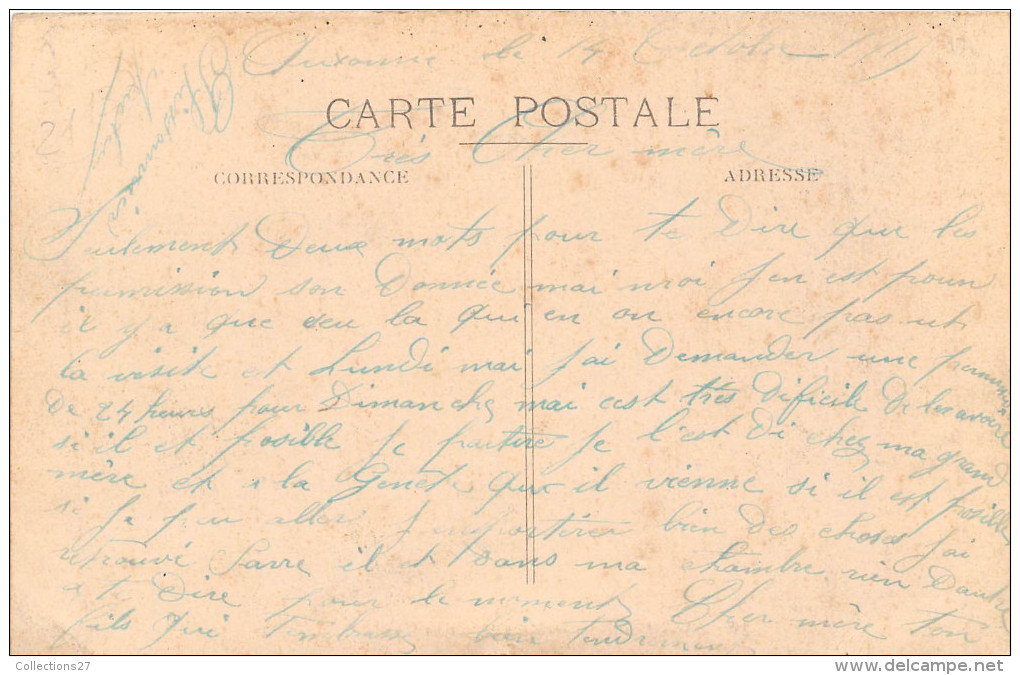 Auxonne le 14 Octobre
CARTE POSTALE
Très Cher mère
CORRESPONDANCE
ADRESSE
21
Seulement Deux mots pour te Dire que les
permission son Donnée mai moi J'en est poun
il y a que seu la qui en on encore pas ut
la visite et Lundi mai J'ai Demander une permission
De 24 heures pour Dimanche mai c'est très Dificile De les avoire
si il et posible Je partire Je l'est Di chez ma grand
mère et a la que il vienne si il est posible
si Je peu aller J'enportirer bien Des choses J'ai
retrouvé il et dans ma chambre rien Dautre
a te Dire pour le moment Cher mère ton
fils qui t'embrasse bien tendrement
Collections27
delcampe.net